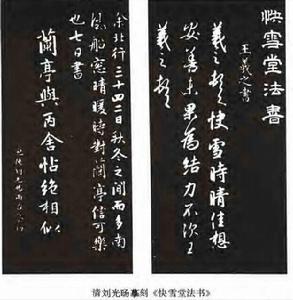 快雪堂法書
王羲之書
羲之頓首快雪時晴佳想
安善未果為結力不次王
羲之頓首
余北行三十二日秋冬之間而多南
風船窗晴暖時對蘭亭信可樂
也七日書
蘭亭與丙舍帖絕相似
清刘光旸摹刻《快雪堂法书》